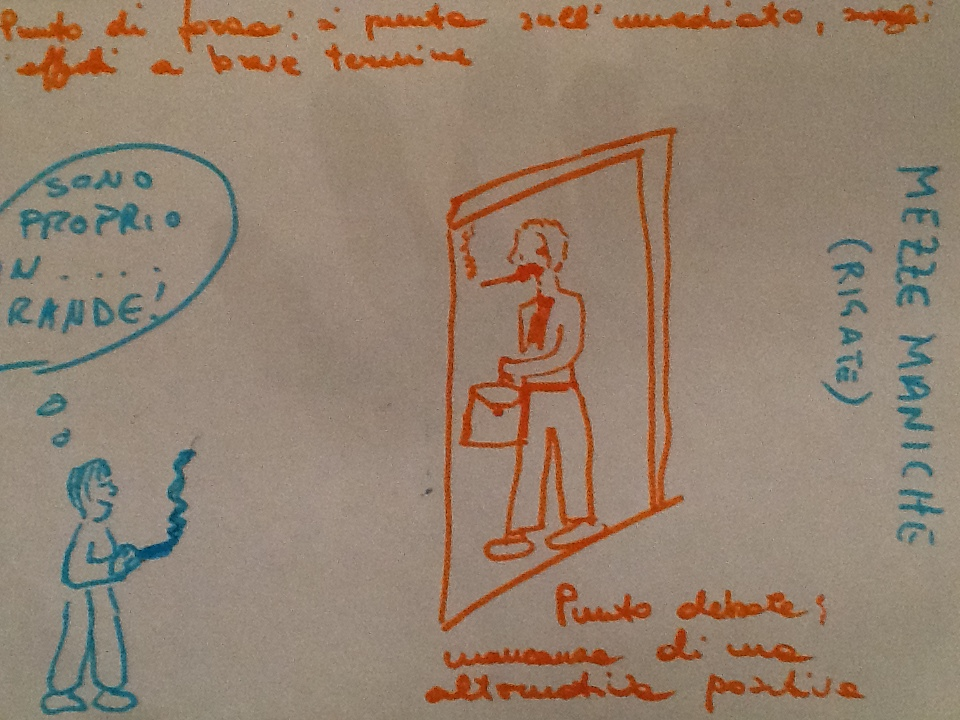 Punto di forza: si punta sull'immediato, sugli
effetti a breve termine
SONO
PROPRIO
UN . . . .
GRANDE!
MEZZE MANICHE
(RIGATE)
Punto debole:
mancanza di una
alternativa positiva